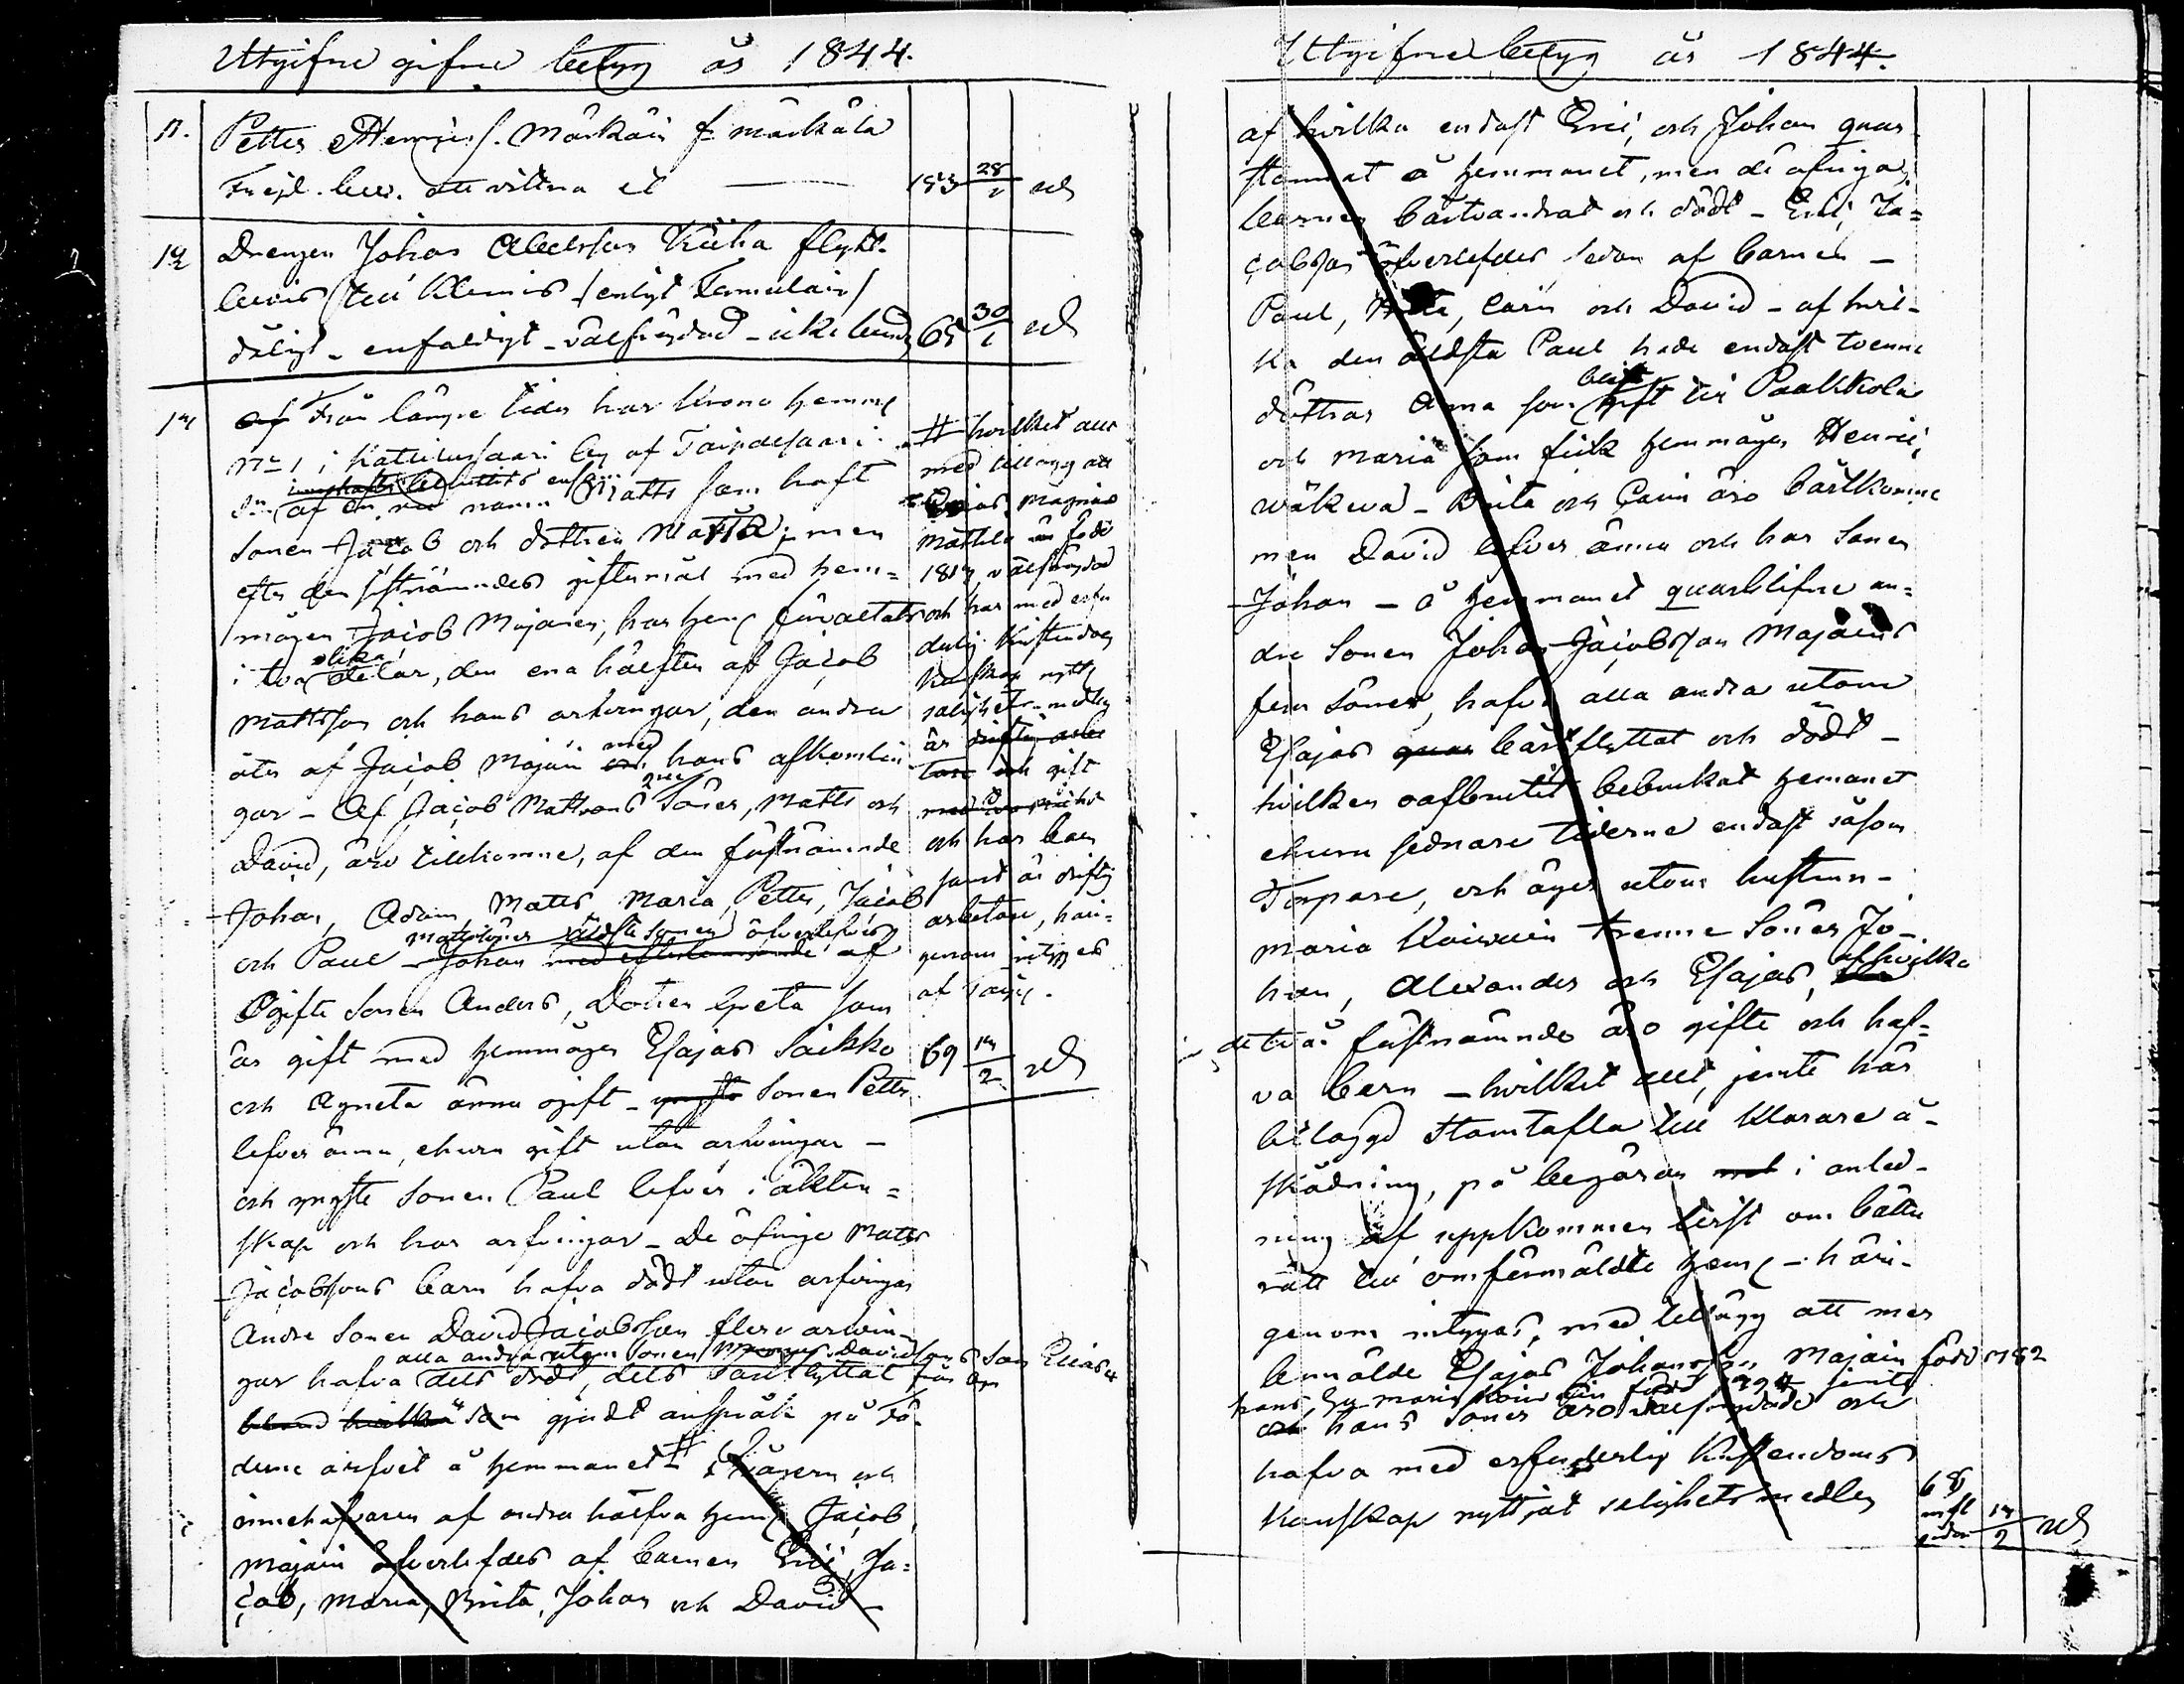 Utgifne gifne betyg år 1844.
11. Petter Henriks. Märkäin f. märkälä
Frejd. bew. att vittna et — 153 28/1
12 Drengen Johan Abelsson Kiiha flytt-
bevis till Klemis /enligt Formulair/
dåligt - enfaldigt - välfrejdad - icke 65 30/1
Af Från längre tider har Krono hemm
No 1 i Kattilussaari by af Taipalsaari
af en vid namn Matts som haft
Sonen Jacob och dottren Maria; men
efter den sistnämndes giftermål med hem=
mågen Jacob Majanen, har hem förvaltats
i två olika delar, den ena hälften af Jacob
Mattsson och hans arfvingar, den andra
åter af Jacob Majain med hans afkomlin
gar - Af Jacob Mattsons Söner, Matts och
David, äro tillkomne, af den förstnämnde
Johan, Adam, Matts Maria, Petter, Jacob
och Paul - Johan med efterkommande af
Mattssöner äldste Sonen öfverlefver
Ogifte Sonen Anders, Dotter Greta som
är gift med hemmågen Esajas Saikko
och Agneta ännu ogift - yngste Sonen Petter
lefver ännu, ehuru gift utan arfvingar -
och yngste Sonen Paul lefver i äkten=
skap och har arfvingar - De öfrige Matts
Jacobsons barn hafva dödt utan arfvingar
Andre Sonen David Jacobsson flere arvin-
alla andra utom Sonen Magnus Davidsons Son Elias
gar hafva dels dödt, dels bortflyttat från
bland hvilka som gjordt anspråk på Fä-
derne arfvet å hemmanet # Svågern och
innehafvaren af andra hälfva hem Jacob
Majain öfverlefdes af barnen Eric, Ja=
cob, Maria, Brita, Johan och David -
# hvilket allt
med tillägg att
Elias Magnus
född
1817, välfrejdad
och har med erfo
derlig Kristendoms
Kunskap nyttj
salighets-medlen
är driftig arbe
tare och gift
och har barn
samt är driftig
arbetare, häri-
genom intygas
af
69 14/2
Utgifne betyg år 1844.
af hvilka endast Eric, och Johan quar-
stannat å hemmanet, men de öfriga
barnen bortvandrat och dödt - Eric Ja=
cobsson öfverlefdes sedan af barnen -
Paul, Carin och David - af hvil-
ka den äldsta Paul hade endast tvenne
döttrar Anna som blift gift till Paakkola
och Maria som fick hemmågen Henric
Wäkevä - Brita och Carin äro bortkomne
men David lefver ännu och har Sonen
Johan - å hemmanet quarblifne an=
dre Sonen Johan Jacobsson Majains
fem Söner, hafva alla andra utom
Esajas quar bortflyttat och dödt -
hvilken oafbrutit bebrukat hemmanet
ehuru sednare tiderne endast såsom
Torpare, och äger utom hustrun -
Maria Koivuin trenne Söner Jo-
han, Alexander och Esajas, af hvilka
de två förstnämnde äro gifte och haf=
va barn - hvilket allt, jemte här
bilagd Stamtafla till klarare å-
skådning, på begäran i anled-
ning af uppkommen twist om bättre
rätt till omförmäldte hem - häri-
genom intygas, med tillägg att mer
bemälde Esajas Johansson Majain född 1782
hans hu Maria Koivuin född jemte
och hans Söner äro välfrejdade och
hafva med erforderlig Kristendoms
Kunskap nyttjat salighets medlen
68 14/2